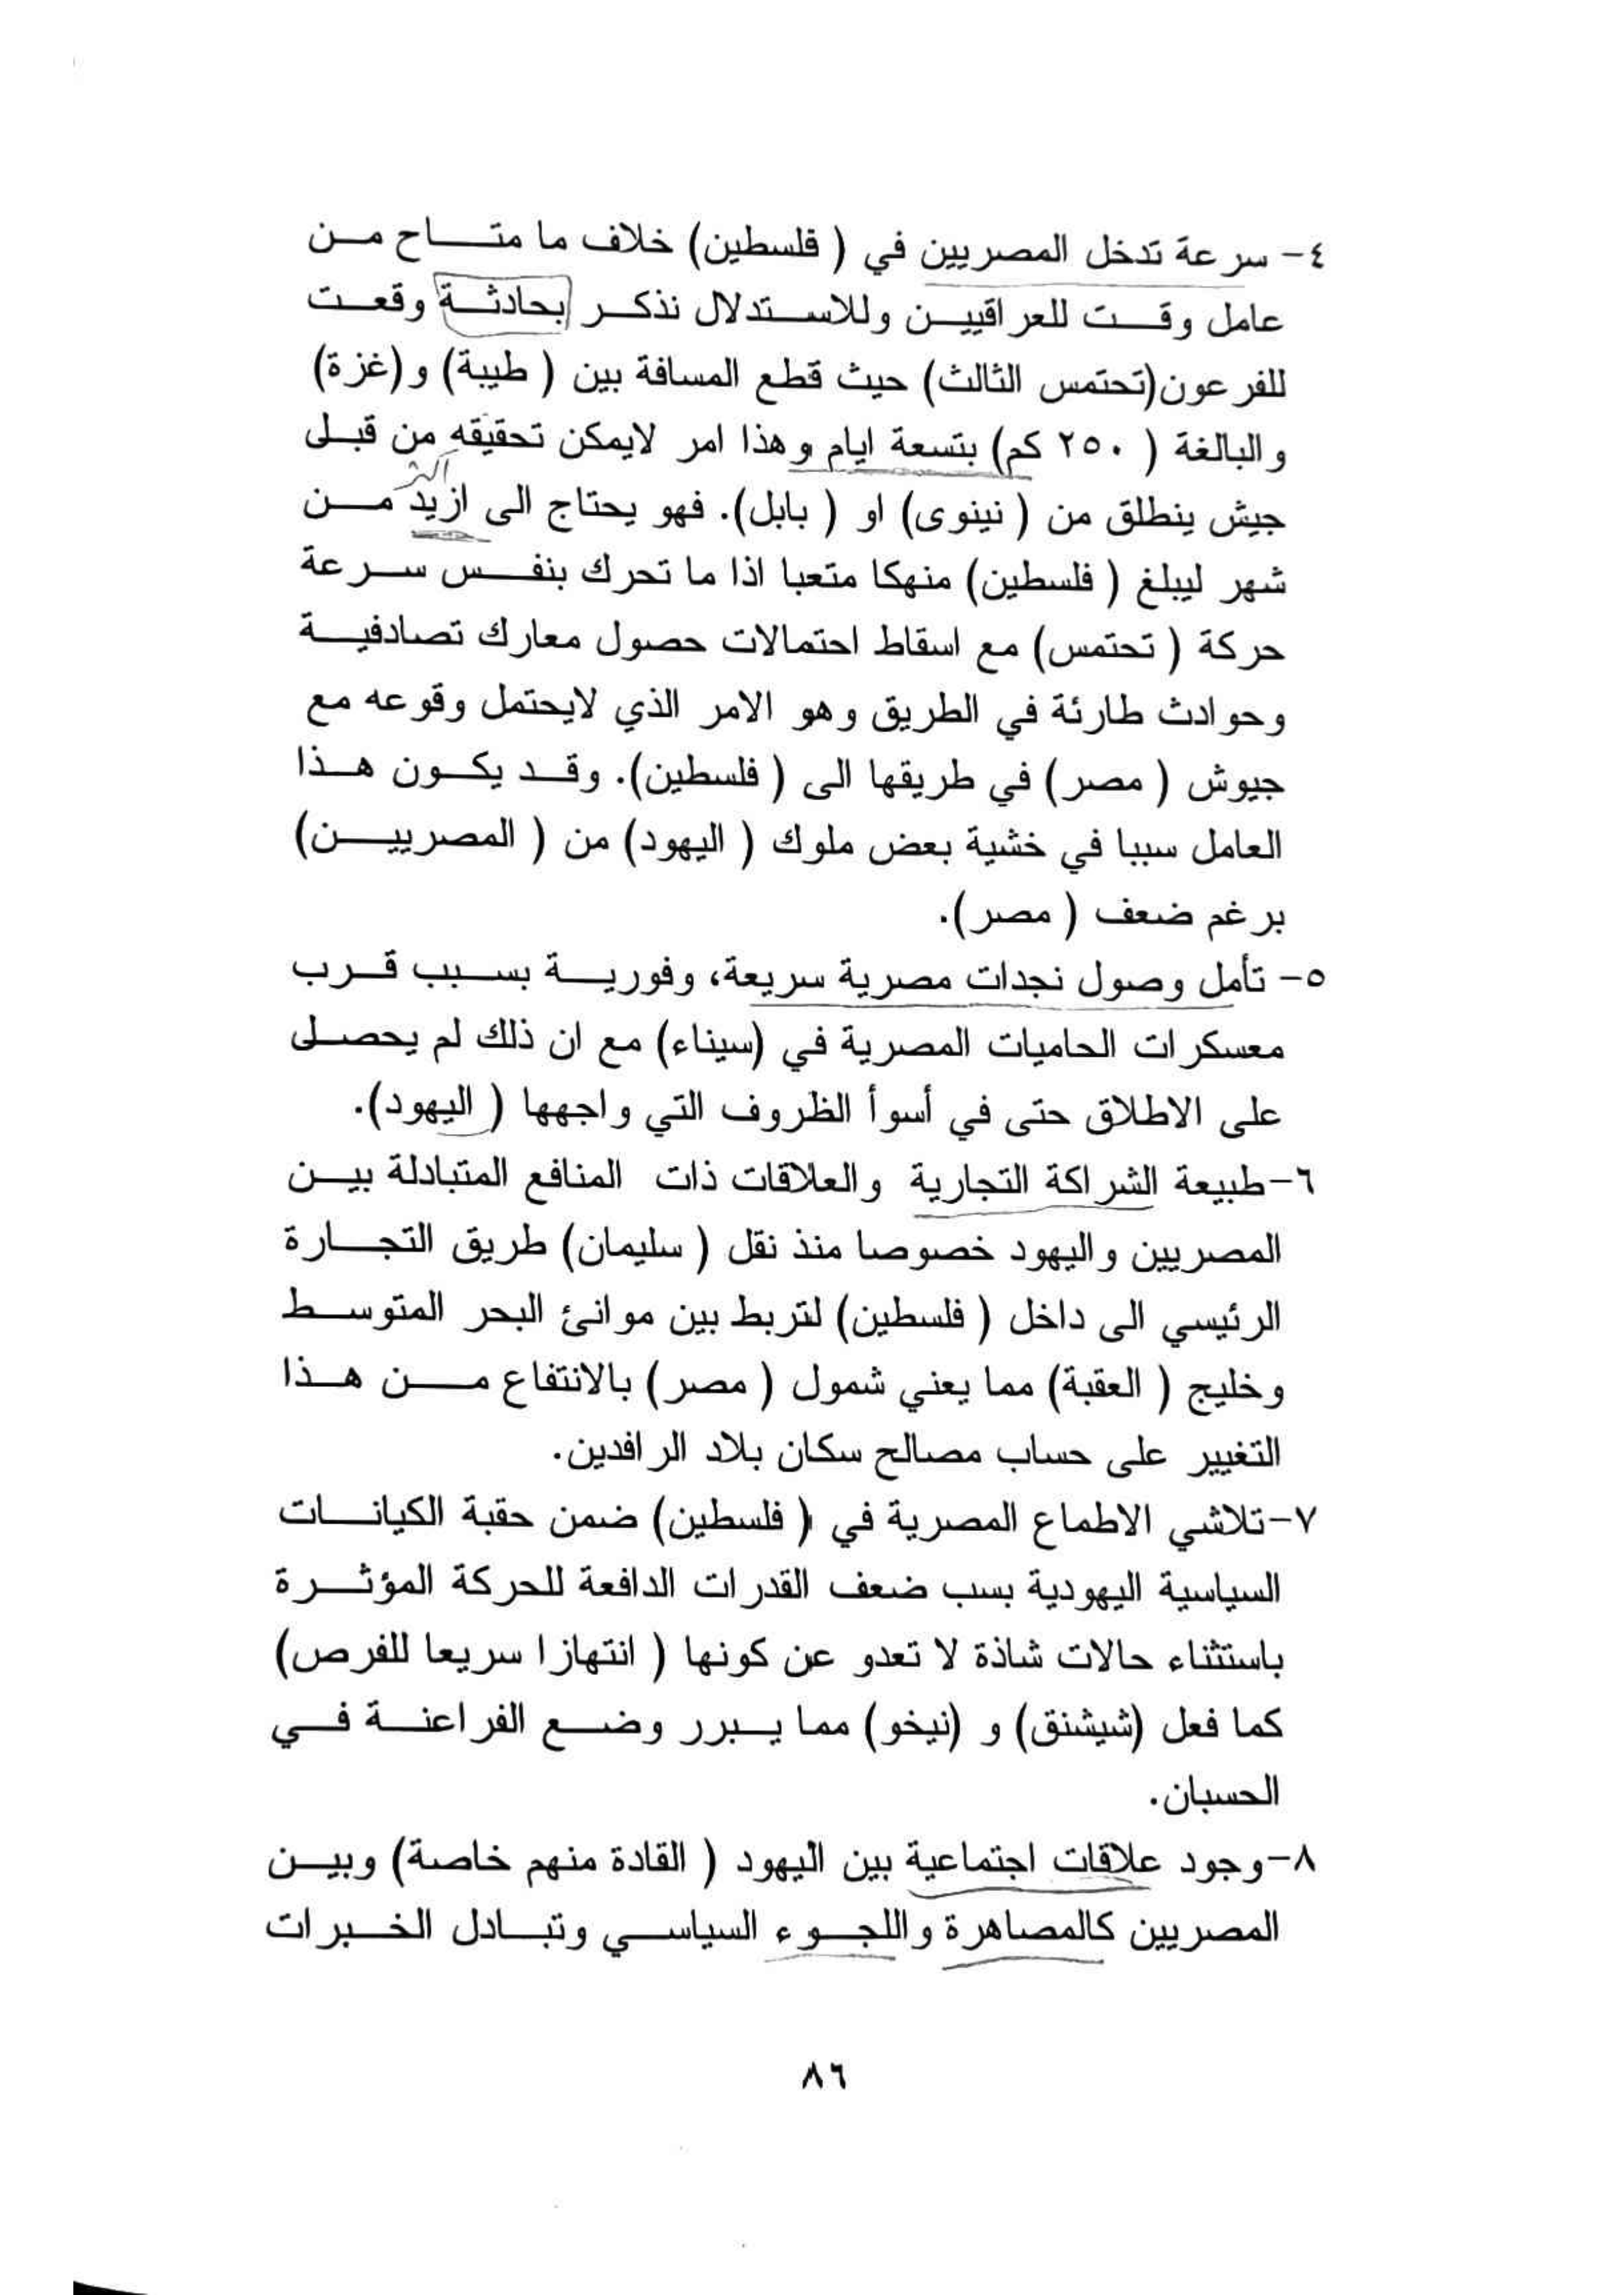 ٤- سرعة تدخل المصريين في ( فلسطين) خلاف ما متاح من
عامل وقت للعراقيين وللاستدلال نذكر بحادثة وقعت
للفرعون(تحتمس الثالث) حيث قطع المسافة بين ( طيبة) و(غزة)
والبالغة ( ٢٥٠ كم) بتسعة ايام وهذا امر لايمكن تحقيقه من قبل
جيش ينطلق من ( نينوى) او ( بابل). فهو يحتاج الى ازيد من
شهر ليبلغ ( فلسطين) منهكا متعبا اذا ما تحرك بنفس سرعة
حركة ( تحتمس) مع اسقاط احتمالات حصول معارك تصادفية
وحوادث طارئة في الطريق وهو الامر الذي لايحتمل وقوعه مع
جيوش ( مصر) في طريقها الى ( فلسطين). وقد يكون هذا
العامل سببا في خشية بعض ملوك ( اليهود) من ( المصريين)
برغم ضعف ( مصر).
٥- تأمل وصول نجدات مصرية سريعة، وفورية بسبب قرب
معسكرات الحاميات المصرية في (سيناء) مع ان ذلك لم يحصل
على الاطلاق حتى في أسوأ الظروف التي واجهها ( اليهود).
٦-طبيعة الشراكة التجارية والعلاقات ذات المنافع المتبادلة بين
المصريين واليهود خصوصا منذ نقل ( سليمان) طريق التجارة
الرئيسي الى داخل ( فلسطين) لتربط بين موانئ البحر المتوسط
وخليج ( العقبة) مما يعني شمول ( مصر) بالانتفاع من هذا
التغيير على حساب مصالح سكان بلاد الرافدين.
٧-تلاشي الاطماع المصرية في ( فلسطين) ضمن حقبة الكيانات
السياسية اليهودية بسب ضعف القدرات الدافعة للحركة المؤثرة
باستثناء حالات شاذة لا تعدو عن كونها ( انتهازا سريعا للفرص)
كما فعل (شيشنق) و (نيخو) مما يبرر وضع الفراعنة في
الحسبان.
٨-وجود علاقات اجتماعية بين اليهود ( القادة منهم خاصة) وبين
المصريين كالمصاهرة واللجوء السياسي وتبادل الخبرات
٨٦